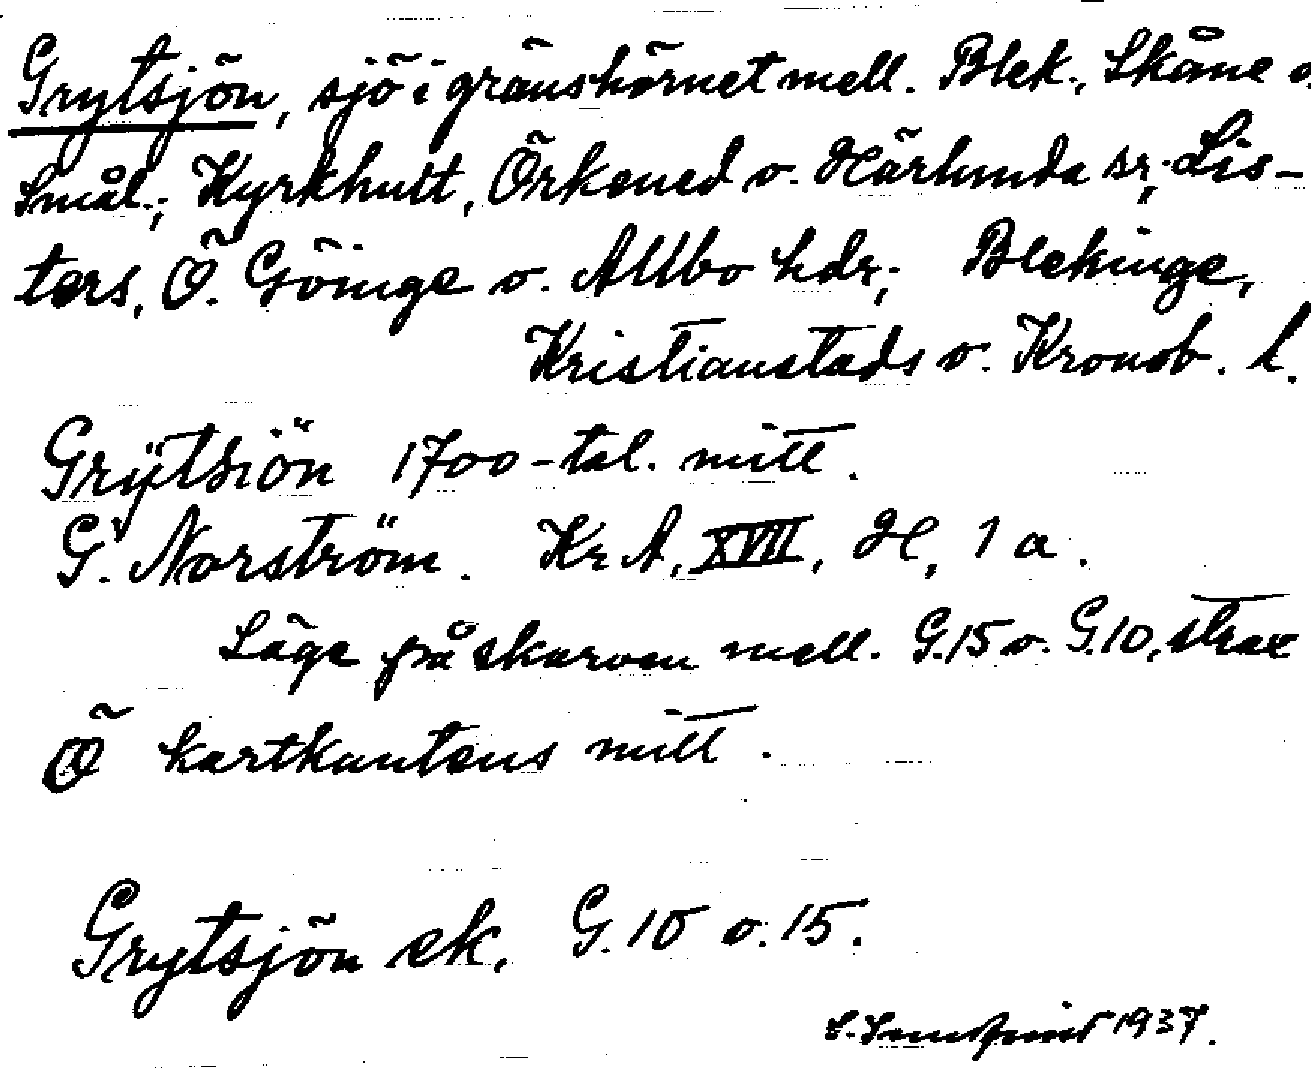 Grytsjön, sjö i gränshörnet mell. Blek., Skåne o.
Smål.; Kyrkhult, Örkened o. Härlunda sr; Lis-
ters, Ö. Göinge o. Allbo hdr; Blekinge,
Kristianstads o. Kronob. l.
Grÿtsiön 1700-tal. mitt.
G. Norström. Kr A, XVII, H, 1 a.
Läge på skarven mell. G.15 o. G.10, strax
Ö kartkantens mitt.
Grytsjön ek. G.10 o. 15.
1937.